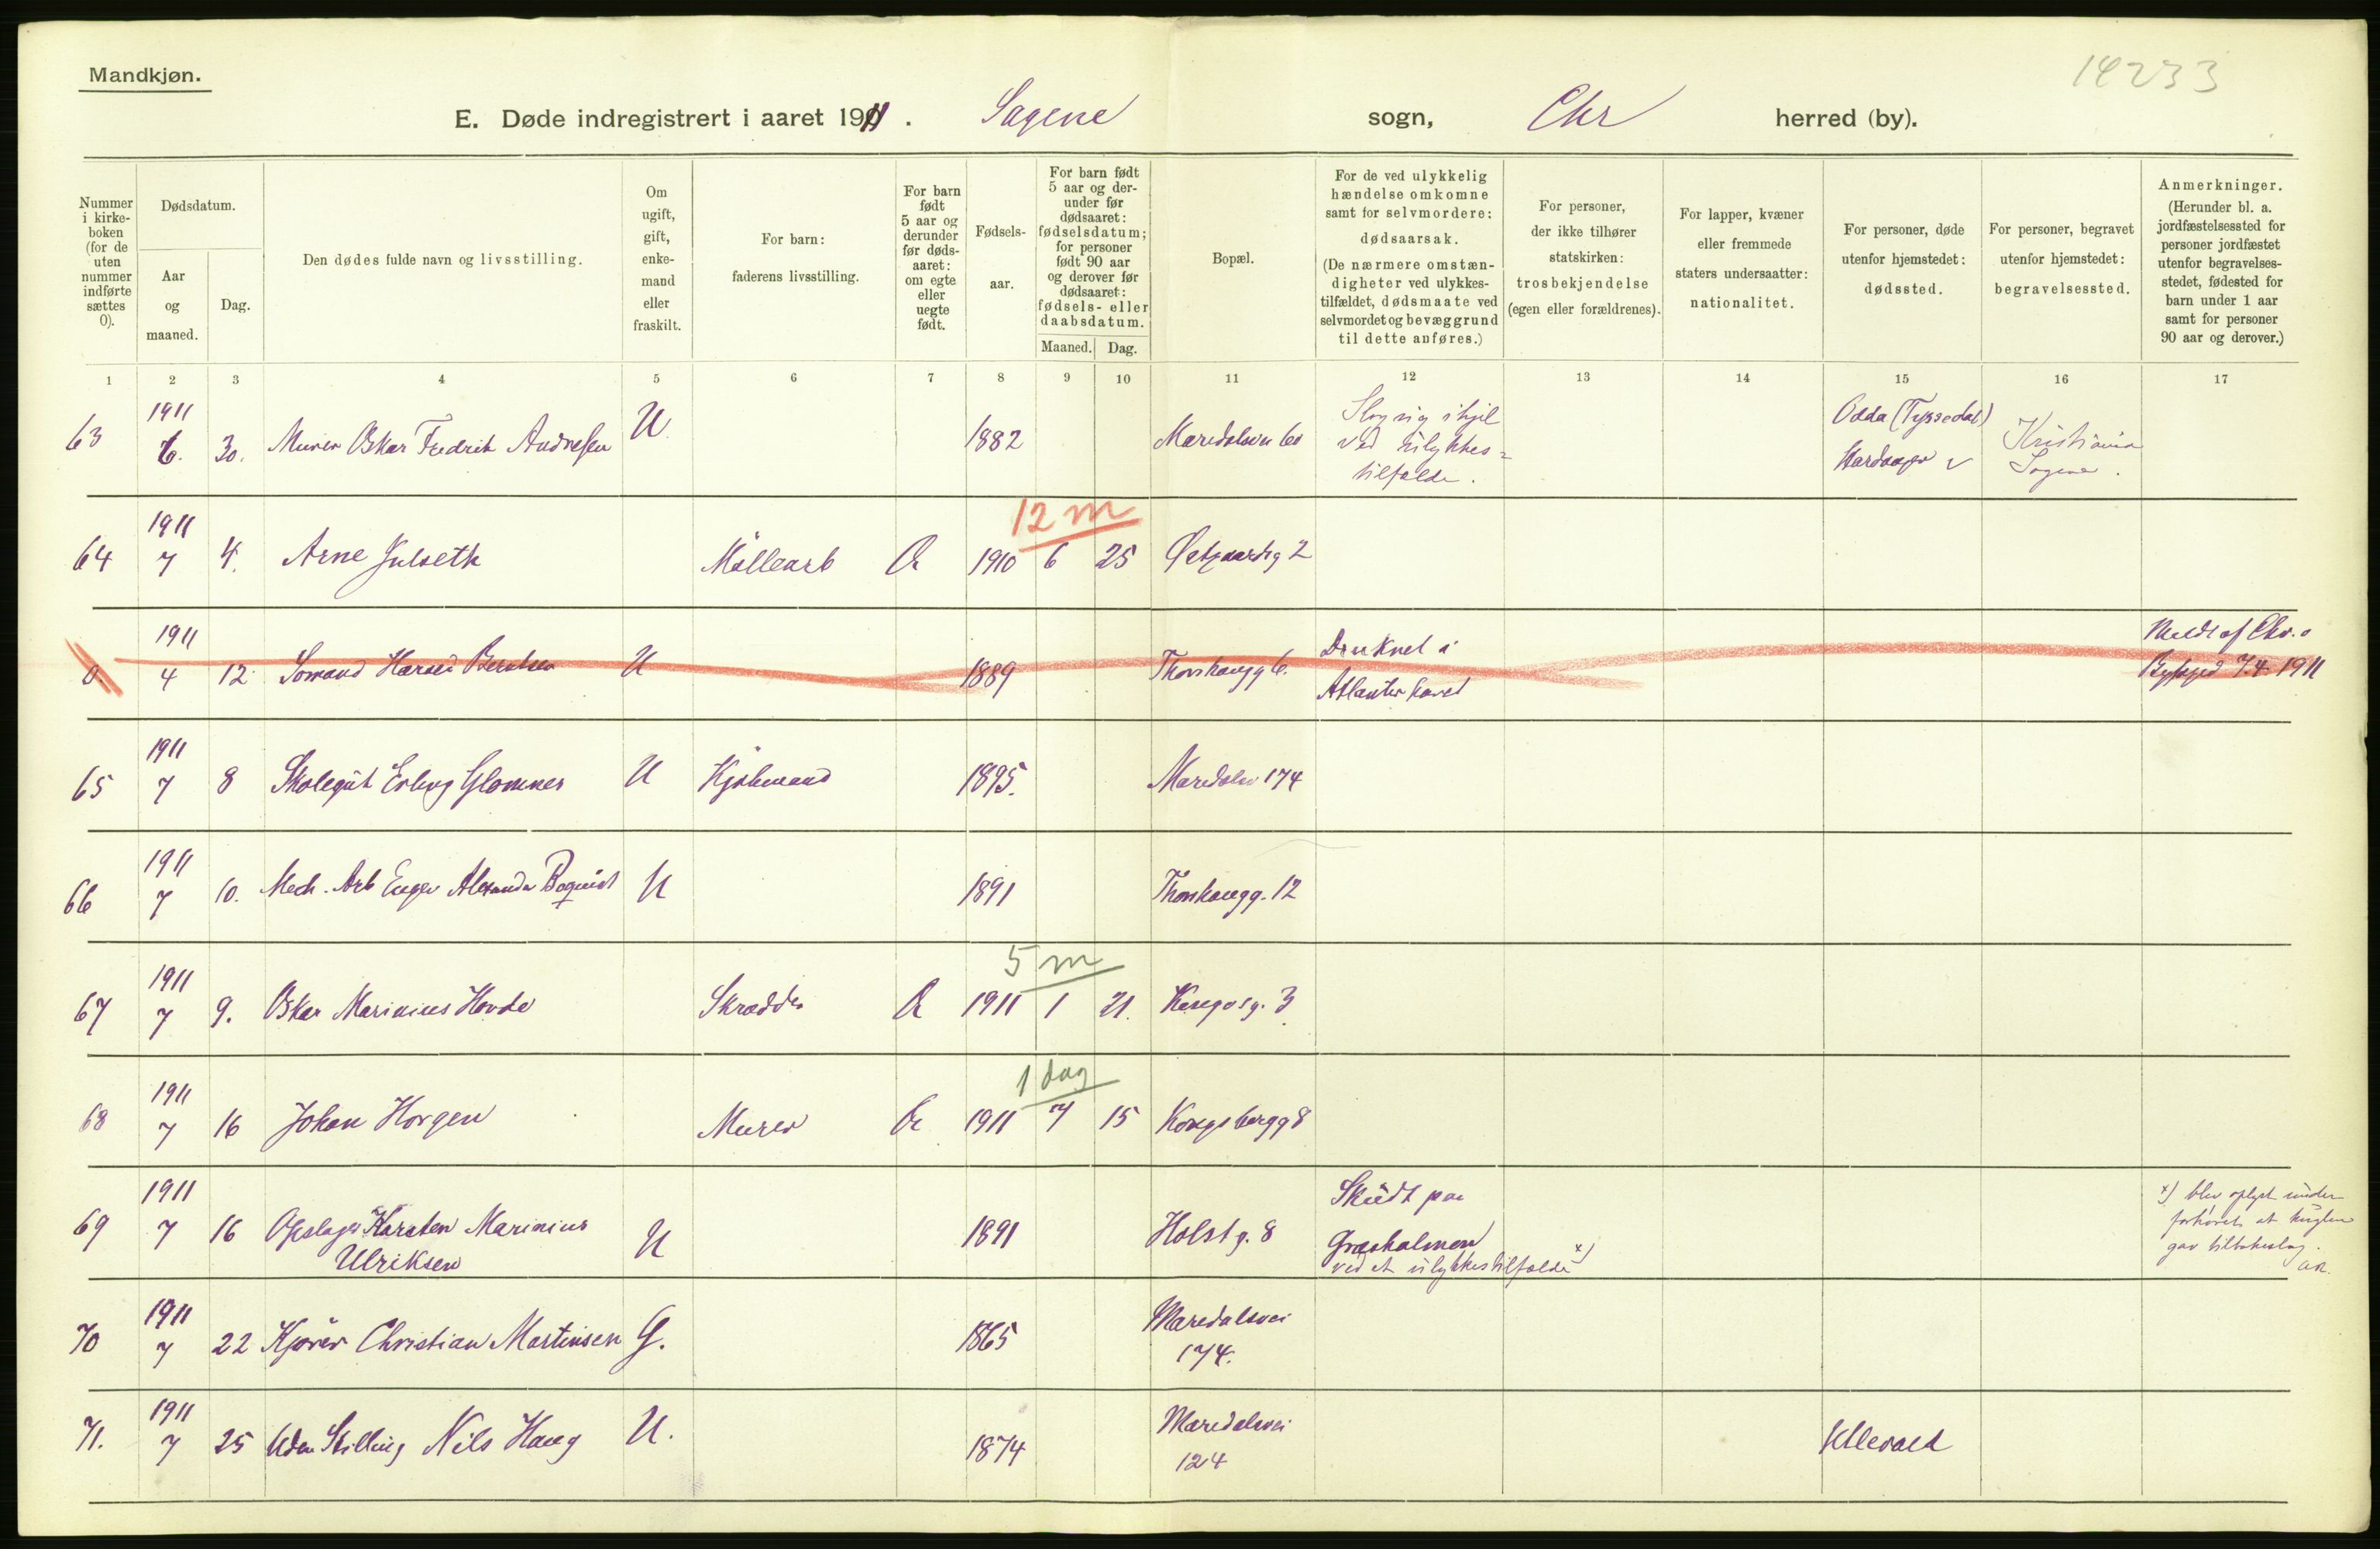 Mandkjøn.
14233
E. Døde indregistrert i aaret 1911. Sagene sogn, Chr herred (by).
Nummer i kirke-boken (for de uten nummer indførte sættes 0).
Dødsdatum.
Aar og maaned.
Dag.
Den dødes fulde navn og livsstilling.
Om ugift, gift, enke-mand eller fraskilt.
For barn: faderens livsstilling.
For barn født 5 aar og derunder før døds-aaret: om egte eller uegte født.
Fødsels-aar.
For barn født 5 aar og der-under før dødsaaret: fødselsdatum; for personer født 90 aar og derover før dødsaaret: fødsels- eller daabsdatum.
Maaned.
Dag.
Bopæl.
For de ved ulykkelig hændelse omkomne samt for selvmordere: dødsaarsak. (De nærmere omstæn-digheter ved ulykkes-tilfældet, dødsmaate ved selvmordet og bevæggrund til dette anføres.)
For personer, der ikke tilhører statskirken: trosbekjendelse (egen eller forældrenes).
For lapper, kvæner eller fremmede staters undersaatter: nationalitet.
For personer, døde utenfor hjemstedet: dødssted.
For personer, begravet utenfor hjemstedet: begravelsessted.
Anmerkninger. (Herunder bl. a. jordfæstelsessted for personer jordfæstet utenfor begravelses-stedet, fødested for barn under 1 aar samt for personer 90 aar og derover.)
1 2 3 4 5 6 7 8 9 10 11 12 13 14 15 16 17
63 1911 6. 30. Murer Oskar Fredrik Andresen U 1882 Maridalsvn 60 Slog sig ihjel ved ulykkes= tilfælde. Odda (Tyssedal) Hardanger Kristiania Sagene.
12 m
64 1911 7 4. Arne Julseth Møllearb 1910 6 25 2
0. 1911 4 12 Sømand Berntsen U 1889 Thorshaugg 6. Druknet i Atlanterhavet Chr.a 7.4. 1911
65 1911 7 8 Skolegut Erling Glomnes U Kjøbmand 1895. Maridalsv 174
66 1911 7 10. Mech. Arb Alexander U 1891 Thorshaugg. 12
5 m
67 1911 7 9. Oskar Marinius Hovde Skrædder 1911 1 21. 3
1 dag
68 1911 7 16 Johan Horgen Murer 1911 7 15 Kongsbergg 8
69 1911 7 16 Opslager Karsten Marinius Ulriksen U 1891 Holstg. 8 Skudt paa Græsholmen ved et ulykkestilfælde x) x) blev oplyst under forhøret at kuglen gav tilbakeslag.
70 1911 7 22 Kjører Christian Martinsen G. 1865 Maredalsvei 174.
71. 1911 7 25 Uden Stilling Nils Haug U. 1874 Maredalsvei 124 Ullevaal